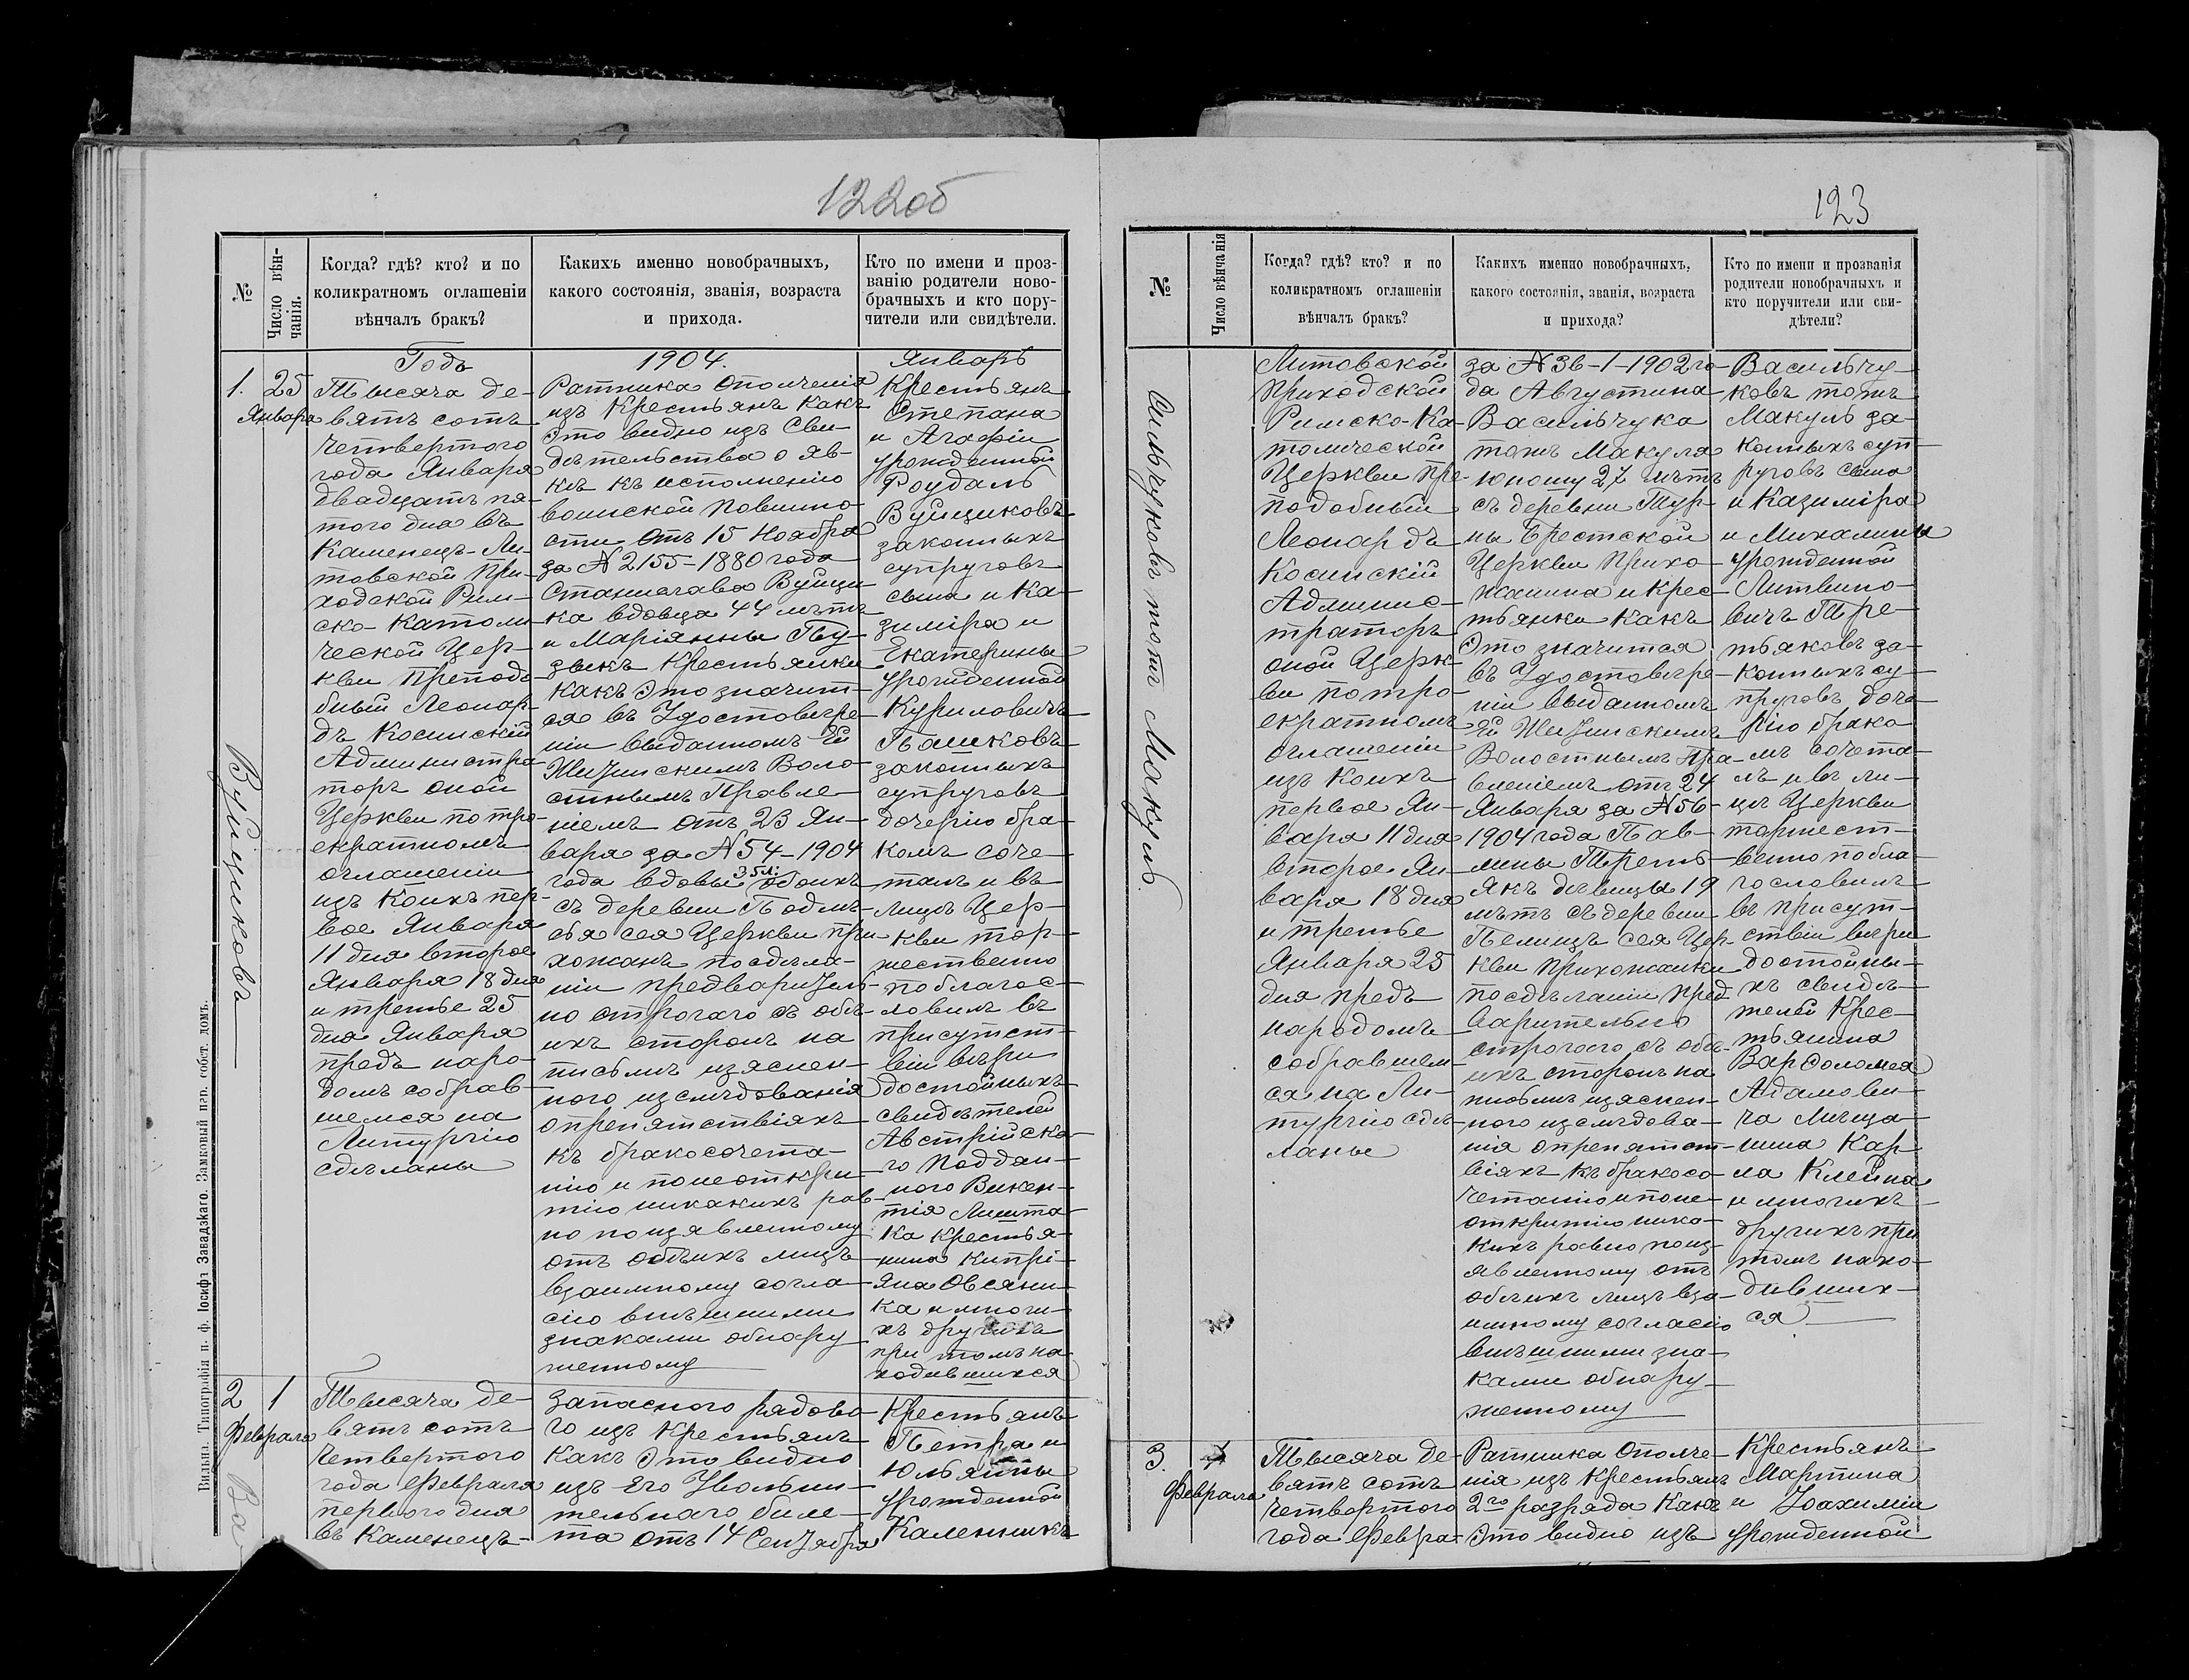 122об
№
Число вѣн-
чанія.
Когда? гдѣ? кто? и по
коликратномъ оглашеніи
вѣнчалъ бракъ?
Какихъ именно новобрачныхъ,
какого состоянія, званія, возраста
и прихода.
Кто по имени и проз-
ванію родители ново-
брачныхъ и кто пору-
чители или свидѣтели.
Годъ
1904.
Январь
1.
25
Января
Вуйциковъ
Тысяча де-
вятъ сотъ
четвертого
года Января
двадцать пя-
того дня въ
Каменецъ-Ли-
товской При-
ходской Рим-
ско-Католи-
ческой Цер-
кви Преподо-
бный Леонар-
дъ Косинскій
Администра-
торъ оной
Церкви по тро-
екратномъ
оглашеніи
изъ коихъ пер-
вое Января
11 дня второе
Января 18 дня
и третье 25
дня Января
предъ наро-
домъ собрав-
шемся на
Литургію
сдѣланы
Ратника ополченія
изъ Крестьянъ какъ
это видно изъ Сви-
дѣтельства о яв-
кѣ къ исполненію
воинской повинно-
сти отъ 15 Ноября
за № 2155-1880 года
Станислава Вуйци-
ка вдовца 44 лѣтъ
и Маріянны Пу-
зыкъ Крестьянки
какъ это значит-
ся въ Удостовѣре-
ніи выданномъ Ей
Волостнымъ Правле-
ніемъ отъ 23 Ян-
варя за № 54-1904
года вдовы обоихъ
съ деревни Подлѣ-
сья сея Церкви при-
хожанъ по сдѣла-
ніи предваритель-
но строгаго съ обѣ-
ихъ сторонъ на
письмѣ изяснен-
ного изслѣдованія
о препятствіяхъ
къ бракосочета-
нію и по неоткри-
тію никакихъ рав-
но по изявленному
отъ обѣихъ лицъ
взаимному согла-
сію внѣшними
знаками обнару
женному
Крестьянъ
Степана
и Агафіи
урожденной
Роудаль
Вуйциковъ
законныхъ
супруговъ
сына и Ка-
зиміра и
Екатерины
урожденной
Куриловичъ
законныхъ
супруговъ
дочерію бра-
комъ соче-
талъ и въ
лицѣ Цер-
кви тор-
жественно
поблагос-
ловилъ въ
присутст-
віи вѣри
достойныхъ
свидѣтелей
Австрійска-
го Поддан-
ного Викен-
тія
Крестья-
нина Кипрі-
яна Овсяни-
ка и многи-
хъ другихъ
при томъ на-
ходившихся
2
1
Февраля
Тысяча де-
вятъ сотъ
четвертого
года Февраля
первого дня
въ Каменецъ-
Запасного рядово-
го изъ Крестьянъ
какъ это видно
изъ Его Увольни-
тельнаго биле-
та отъ 14 Сентября
Крестьянъ
Петра и
Юльянны
урожденной
Вильна. Типографія п. ф. Іосифъ Завадзкаго. Замковый пер. собст. домъ.
123
№
Число вѣнчанія
Когда? гдѣ? кто? и по
коликратномъ оглашеніи
вѣнчалъ бракъ?
Какихъ именно новобрачныхъ,
какого состоянія, званія, возраста
и прихода?
Кто по имени и прозванія
родители новобрачныхъ и
кто поручители или сви-
дѣтели?
Литовской
Приходской
Римско-Ка-
толической
Церкви Пре-
подобный
Леонардъ
Косинскій
Админис-
траторъ
оной Церк-
ви по тро-
екратномъ
оглашеніи
изъ коихъ
первое Ян-
варя 11 дня
второе Ян-
варя 18 дня
и третье
Января 25
дня предъ
народомъ
собравшем-
ся на Ли-
тургію сдѣ-
ланы
за № 36-1-1902 го-
да Августина
Васильчука
тожъ Макуля
юношу 27 лѣтъ
съ деревни Тур-
ны Брестской
Церкви Прихо-
жанина и Крес-
тьянки какъ
это значится
въ Удостовѣре-
ніи выданномъ
Ей
Волостнымъ Пра-
вленіемъ отъ 24
Января за № 56
1904 года Пав-
лины Треть-
якъ дѣвицы 19
лѣтъ съ деревни
Пелищъ сея Цер-
кви прихожанки
по сдѣланіи пред
варительно
строгого съ обѣ-
ихъ сторонъ на
письмѣ изяснен-
ного изслѣдова-
нія о препятст-
віяхъ къ бракосо-
четанію и по не-
откритію ника-
кихъ равно по из-
явленному отъ
обѣихъ лицъ вза-
имному согласію
внѣшними зна-
ками обнару-
женному
Васильчу-
ковъ тожъ
Макуль за-
конныхъ суп-
руговъ сына
и Казиміра
и Михалины
урожденной
Литвино-
вичъ Тре-
тьяковъ за-
конныхъ су-
пруговъ доче-
рію брако-
мъ сочета-
лъ и въ ли-
цѣ Церкви
торжест-
венно побла-
гословилъ
въ присут-
ствіи вѣри
достойны-
хъ свидѣ-
телей Крес-
тьянина
Варфоломея
Адамови-
ча Мѣща-
нина Кар-
ла Клейна
и многихъ
другихъ при
томъ нахо-
дивших-
ся
3.
Февраля
Тысяча де-
вятъ сотъ
четвертого
года Февра-
Ратника ополче-
нія изъ Крестьянъ
2го разряда какъ
это видно изъ
Крестьянъ
Мартина
и Іоахиміи
урожденной